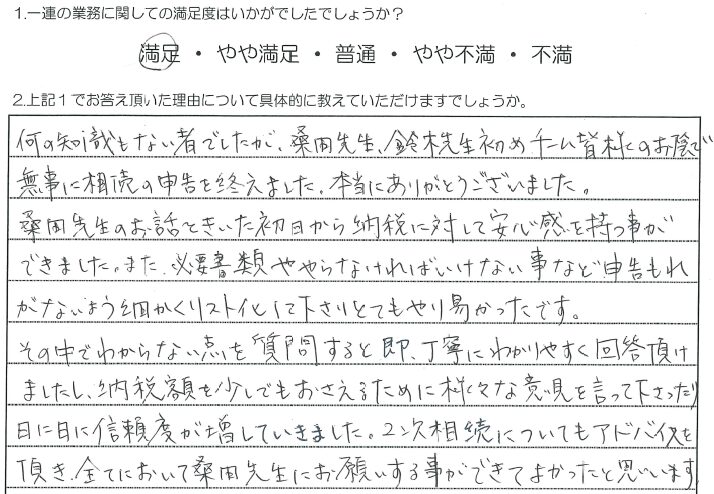 1.一連の業務に関しての満足度はいかがでしたでしょうか？
満足・やや満足・普通・やや不満・不満
2.上記１でお答え頂いた理由について具体的に教えていただけますでしょうか。
何の知識もない者でしたが、桑田先生、鈴木先生初めチーム皆様のお陰で
無事に相続の申告を終えました。本当にありがとうございました。
桑田先生のお話をきいた初日から納税に対して安心感を持つ事が
できました。また、必要書類ややらなければいけない事など申告もれ
がないよう細かくリスト化して下さりとてもやり易かったです。
その中でわからない点を質問すると即、丁寧にわかりやすく回答頂け
ましたし、納税額を少しでもおさえるために様々な意見を言って下さったり
日に日に信頼度が増していきました。2次相続についてもアドバイスを
頂き、全てにおいて桑田先生にお願いする事ができてよかったと思います